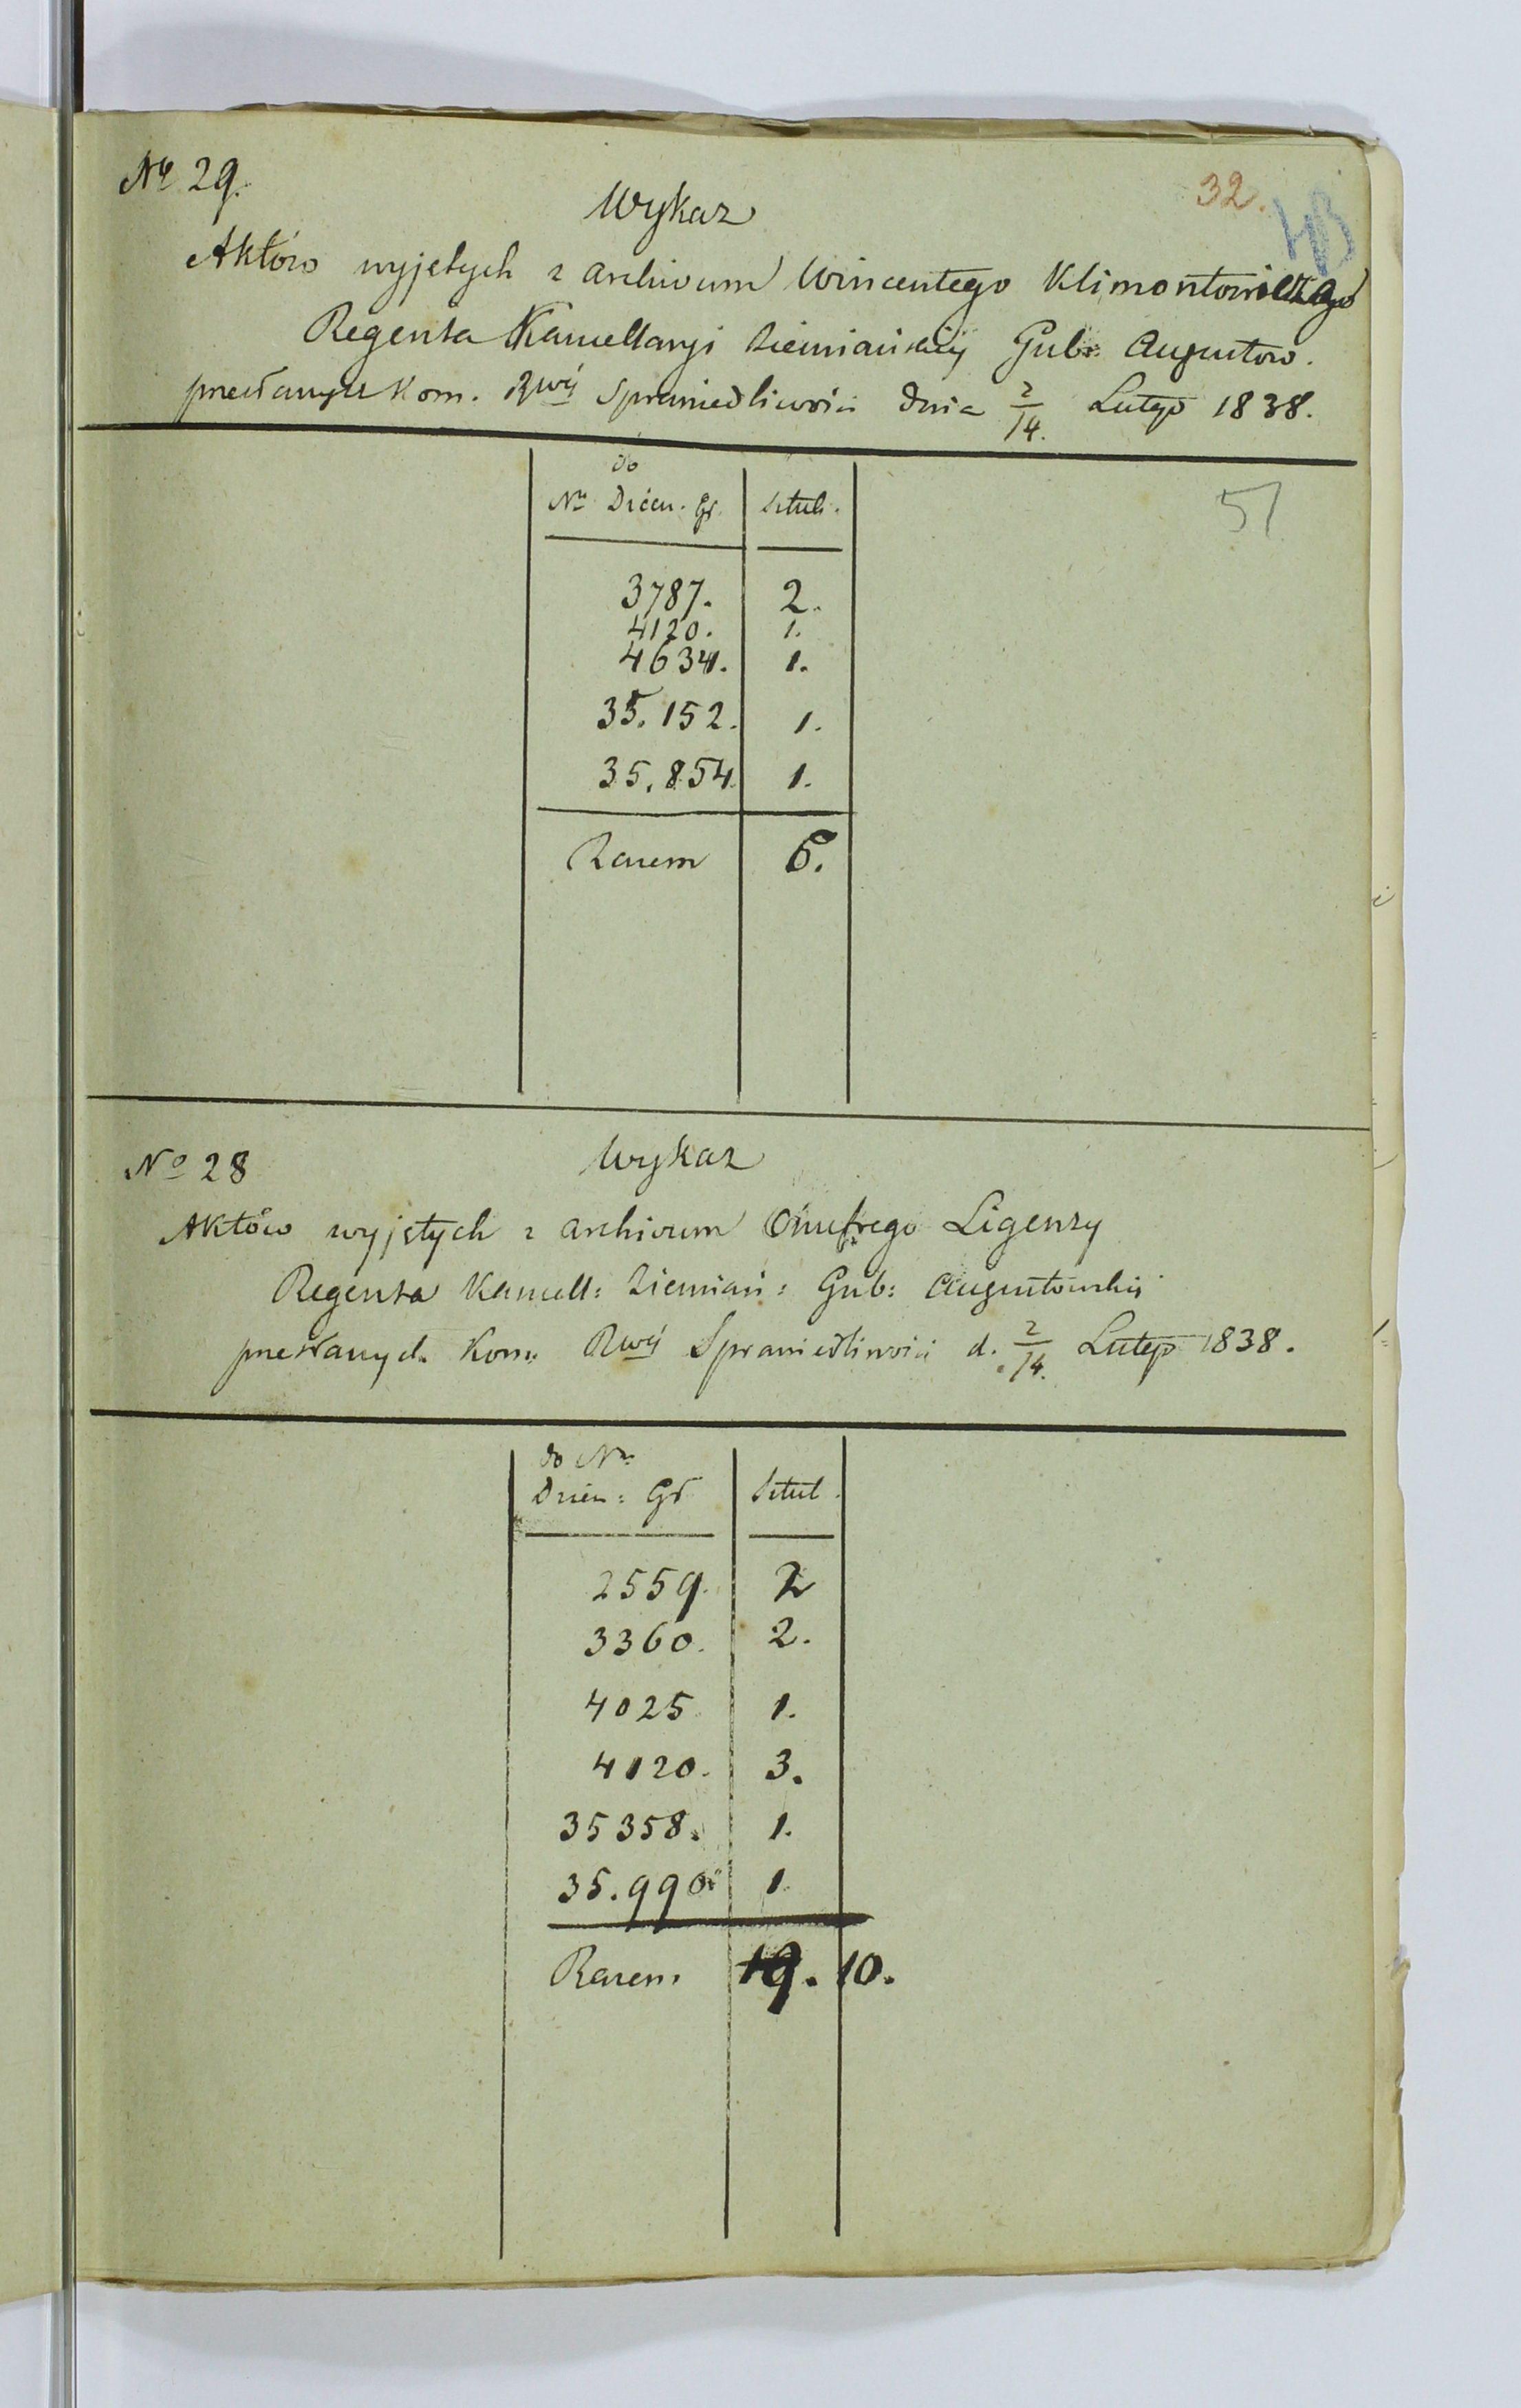 № 29.
32.
43
Wykaz
Aktów wyjętych z archivum Wincentego Klimontowiczego
Regenta Kancellaryi Ziemiańskiej Gub: Augustow.
przesłanych Kom. Rwéj Sprawiedliwości dnia 2/14. Lutego 1838.
51
do
Nr Dzien. Gł. Sztuk.
3787. 2.
4120. 1.
4634. 1.
35.152. 1.
35.854. 1.
Razem 6.
№ 28
Wykaz
Aktów wyjętych z archivum Onufrego Ligenzy
Regenta Kancell: Ziemiań: Gub: Augustowskiéj
przesłanych Kom: Rwéj Sprawiedliwości d. 2/14. Lutego 1838.
do Nr
Dzien: Gł Sztuk.
2559. 2
3360. 2.
4025 1.
4120. 3.
35358. 1.
35.990. 1.
Razem 19. 10.